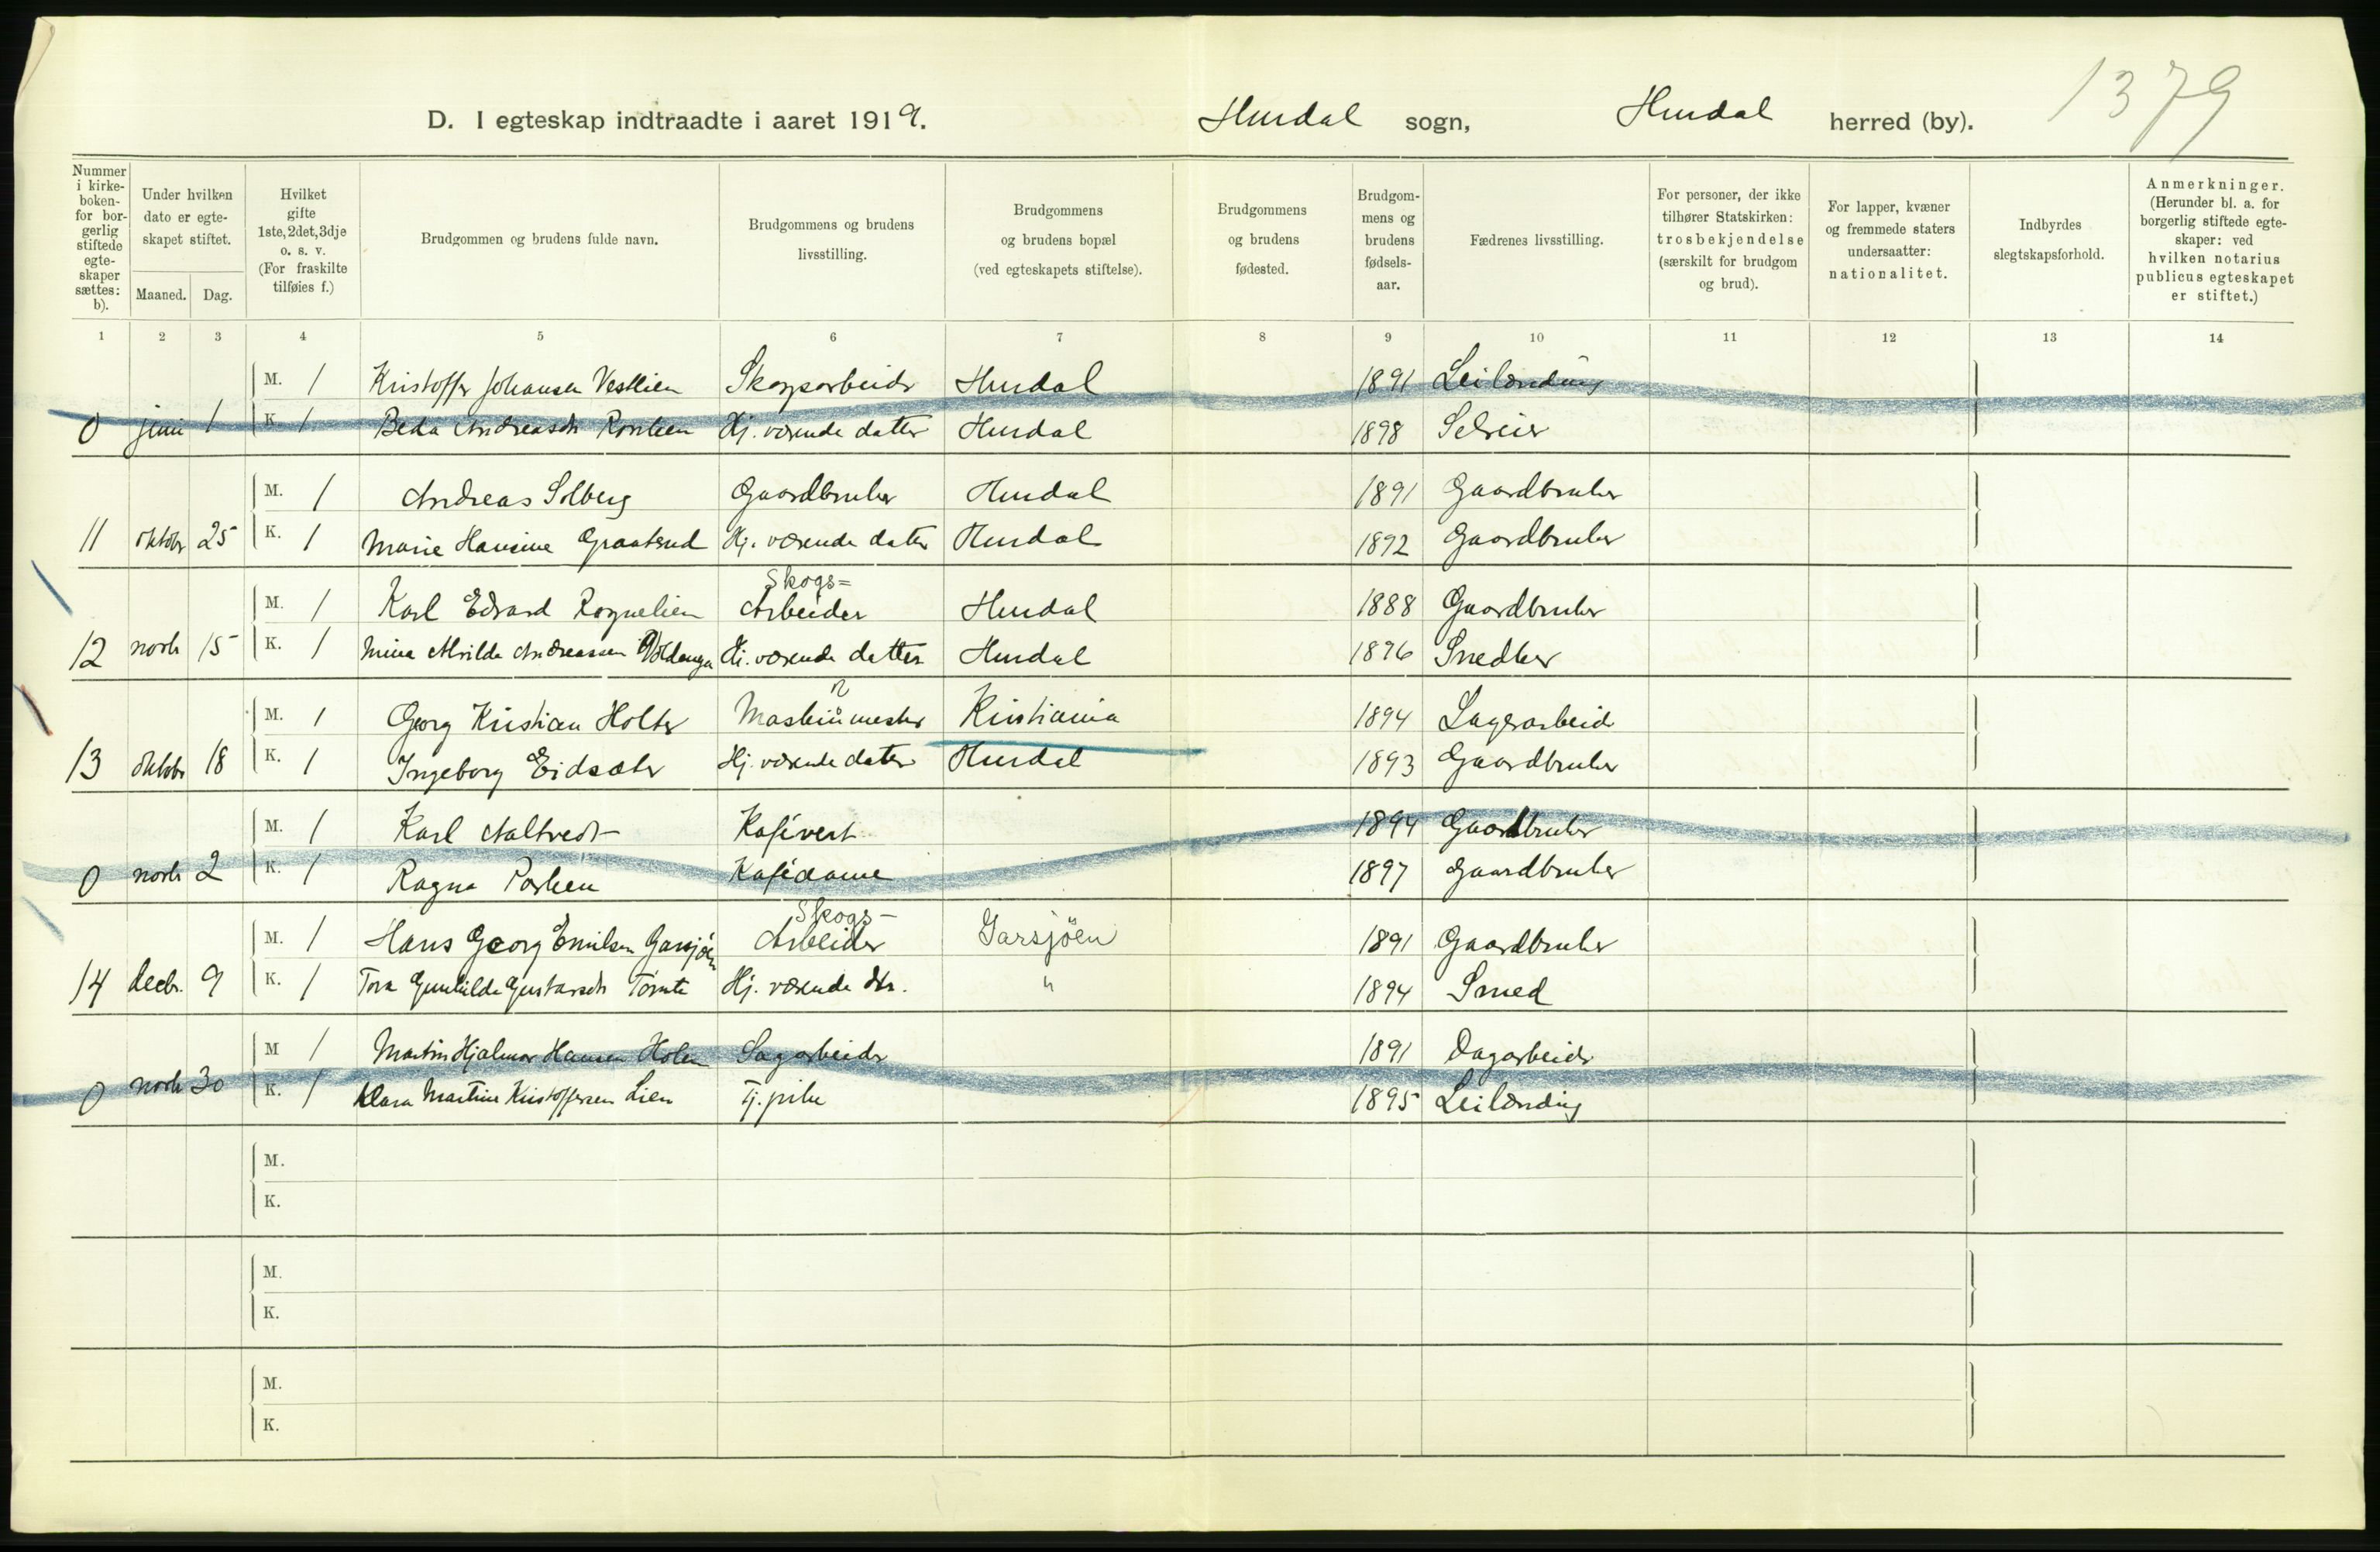 1379
D. I egteskap indtraadte i aaret 1919. Hurdal sogn, Hurdal herred (by).
Nummer i kirke-boken- for bor-gerlig stiftede egte-skaper sættes: b).
Under hvilken dato er egte-skapet stiftet.
Maaned. Dag.
Hvilket gifte 1ste, 2det, 3dje o. s. v. (For fraskilte tilføies f.)
Brudgommen og brudens fulde navn.
Brudgommens og brudens livsstilling.
Brudgommens og brudens bopæl (ved egteskapets stiftelse).
Brudgommens og brudens fødested.
Brudgom-mens og brudens fødsels-aar.
Fædrenes livsstilling.
For personer, der ikke tilhører Statskirken: trosbekjendelse (særskilt for brudgom og brud).
For lapper, kvæner og fremmede staters undersaatter: nationalitet.
Indbyrdes slegtskapsforhold.
Anmerkninger. (Herunder bl. a. for borgerlig stiftede egte-skaper: ved hvilken notarius publicus egteskapet er stiftet.)
1 2 3 4 5 6 7 8 9 10 11 12 13 14
M. 1 Kristoffer Johansen Vestlien Skogsarbeider Hurdal 1891 Leilænding
0 juni 1 K. 1 Beda Andreasdt Hj. værende datter Hurdal 1898 Selveier
M. 1 Andreas Solberg Gaardbruker Hurdal 1891 Gaardbruker
11 oktober 25 K. 1 Marie Hansine Graatrud Hj. værende datter Hurdal 1892 Gaardbruker
Skogs=
M. 1 Karl Edvard Rognelien Arbeider Hurdal 1888 Gaardbruker
12 novb 15 K. 1 Mina Alvilde Andreassen Voldenga Hj. værende datter Hurdal 1896 Snedker
n
M. 1 Georg Kristian Holter Maskinmester Kristiania 1894 Lagerarbeid
13 oktober 18 K. 1 Ingeborg Eidsæter Hj. værende datter Hurdal 1893 Gaardbruker
M. 1 Karl Aaltvedt Kafévert 1894 Gaardbruker
0 novb 2 K. 1 Ragna Kafédame 1897 Gaardbruker
Skogs-
M. 1 Hans Georg Emilsen Garsjøen Arbeider Garsjöen 1891 Gaardbruker
14 decbr. 9 K. 1 Tora Gunhilda Gustavsdt Tømte Hj. værende dtr. " 1894 Smed
M 1 Martin Hjalmar Hansen Holen Sagarbeider 1891 Dagarbeider
0 novb 30 K. 1 Klara Martine Kristoffersen Lien Tj. pike 1895 Leilænding
M.
K.
M.
K.
M.
K.